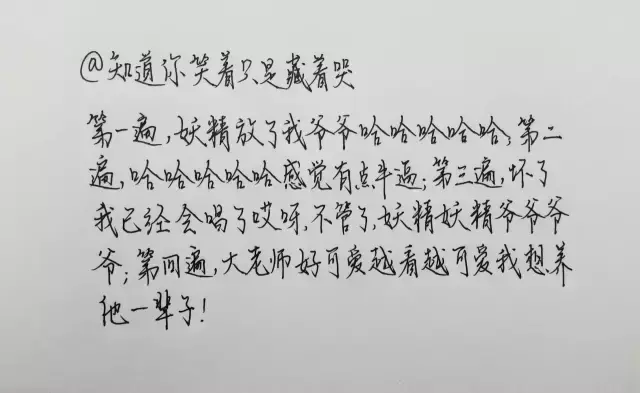 @知道你笑着只是藏着哭
第一遍,妖精放了我爷爷哈哈哈哈哈;第二
遍,哈哈哈哈哈感觉有点半遍;第三遍,坏了
我已经会唱了哎呀,不管了,妖精妖精爷爷爷
爷;第四遍,大老师好可爱越看越可爱我想养
他一辈子!